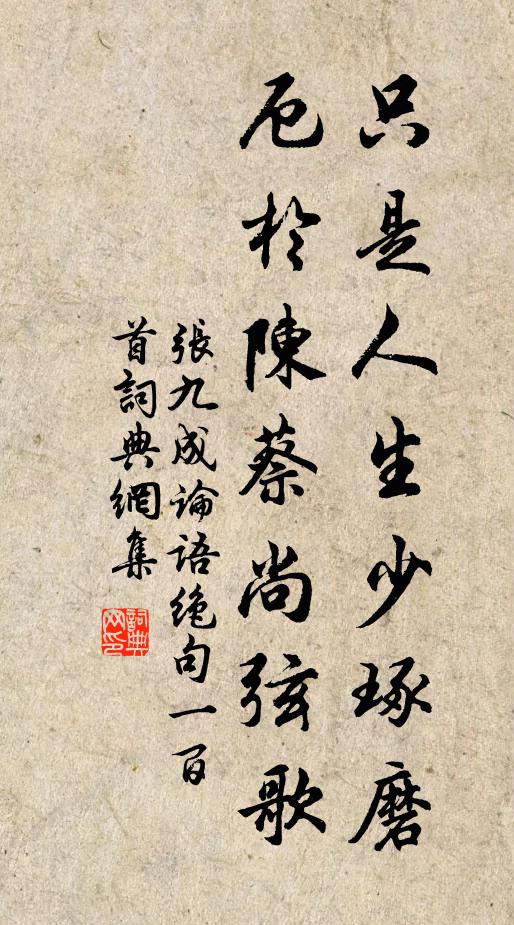 只是人生少琢磨
厄於陳蔡尚弦歌
張九成論語絶句一百
首詞典網集
詞典
网印